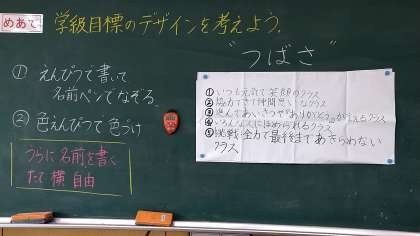 めあて 学級目標のデザインを考えよう。
"つばさ"
① えんぴつで書いて
名前ペンでなぞる。
② 色えんぴつで色づけ
うらに名前を書く
たて横 自由
① いつも元気で笑顔のクラス
② 協力できて仲間思いなクラス
③ 進んであいさつや"ありがとう"が言えるクラス
④ いろんな人にほめられるクラス
⑤ 挑戦・全力で最後まであきらめない
クラス